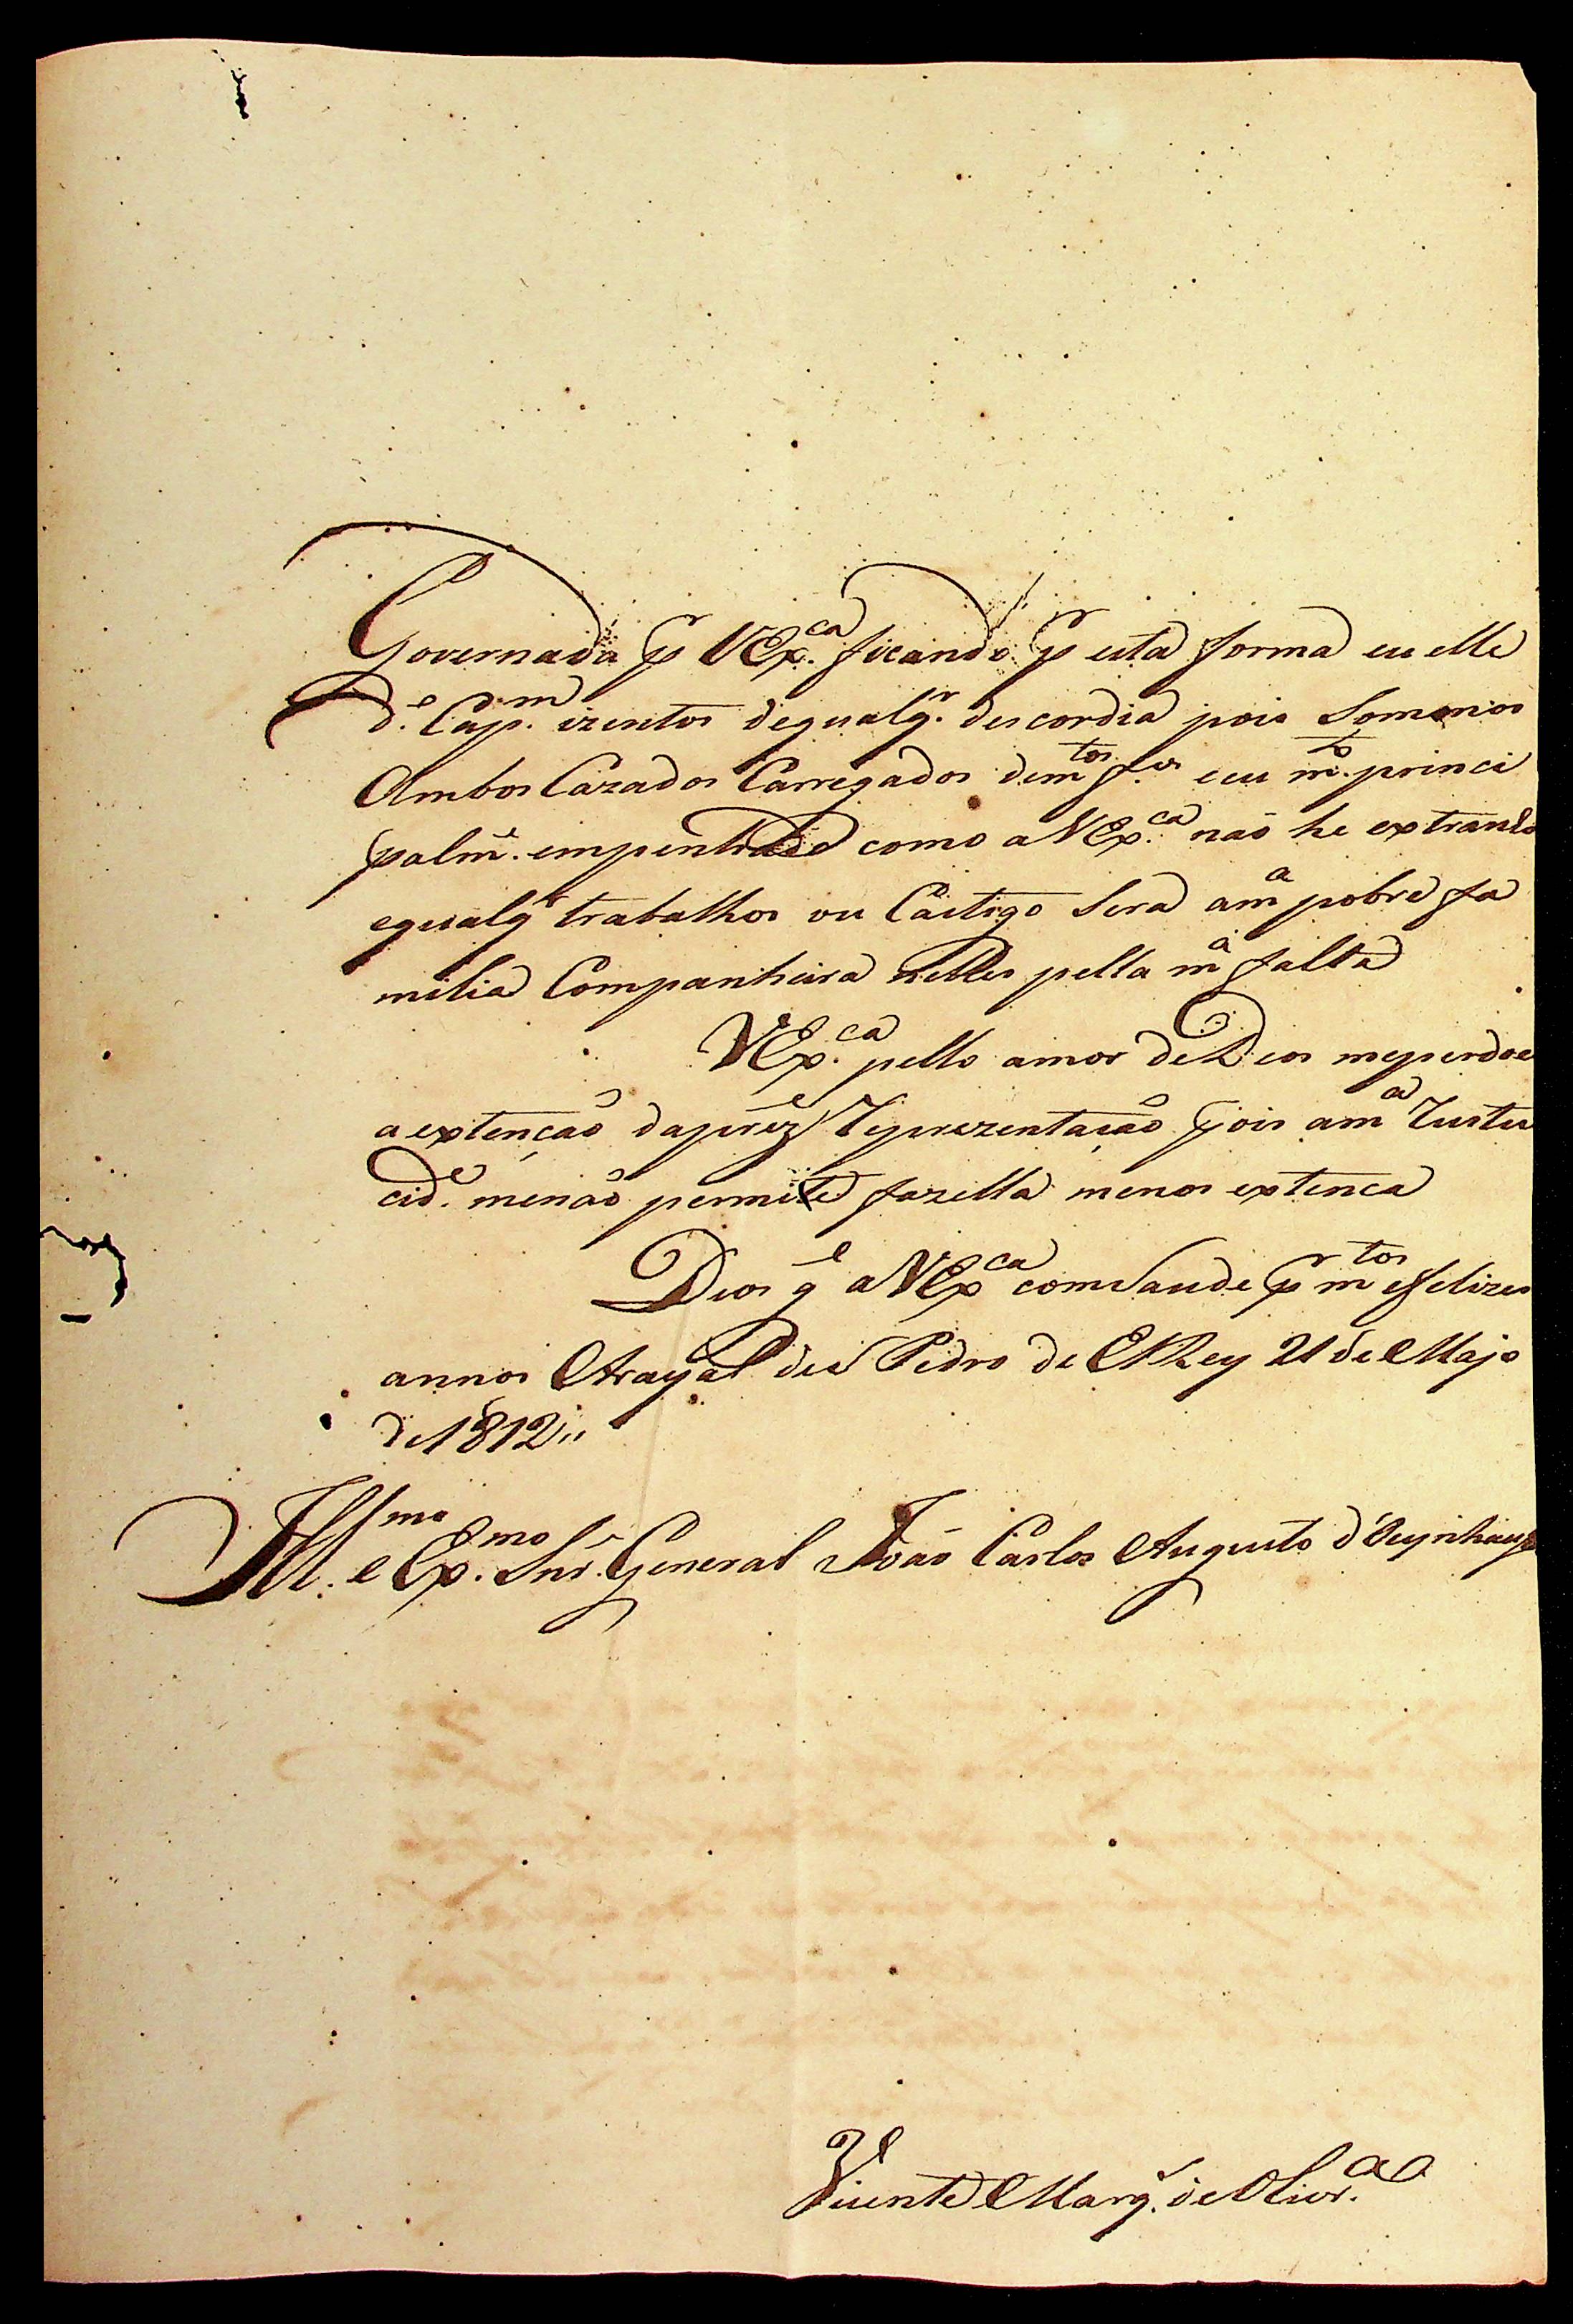 Governada pr VExca. ficando pr esta forma eu elle
de. Capm. izentos dequalqr. descordia pois Somonos
Ambos Cazados Carregados demtos fos eeu mto. princi
palme. empenhado como a VExca. não he extranho
equalqr trabalhos ou Castigo Sera ama pobre fa
milia Companheira nelles pella ma falta
VExca. pello amor de Deos meperdoe
aextenção daprez Reprezentação pois ama Rusti
cide. menão permite fazella menos extença
Deos ge a VExca comSaude pr mtos efelizes
annos Arayal de S Pedro de ElRey 21 de Majo
de 1812
Illmo. e Exmo. Snr. General João Carlos Augusto d'Oeynhausen
Vicente Marqs. de Olivra.